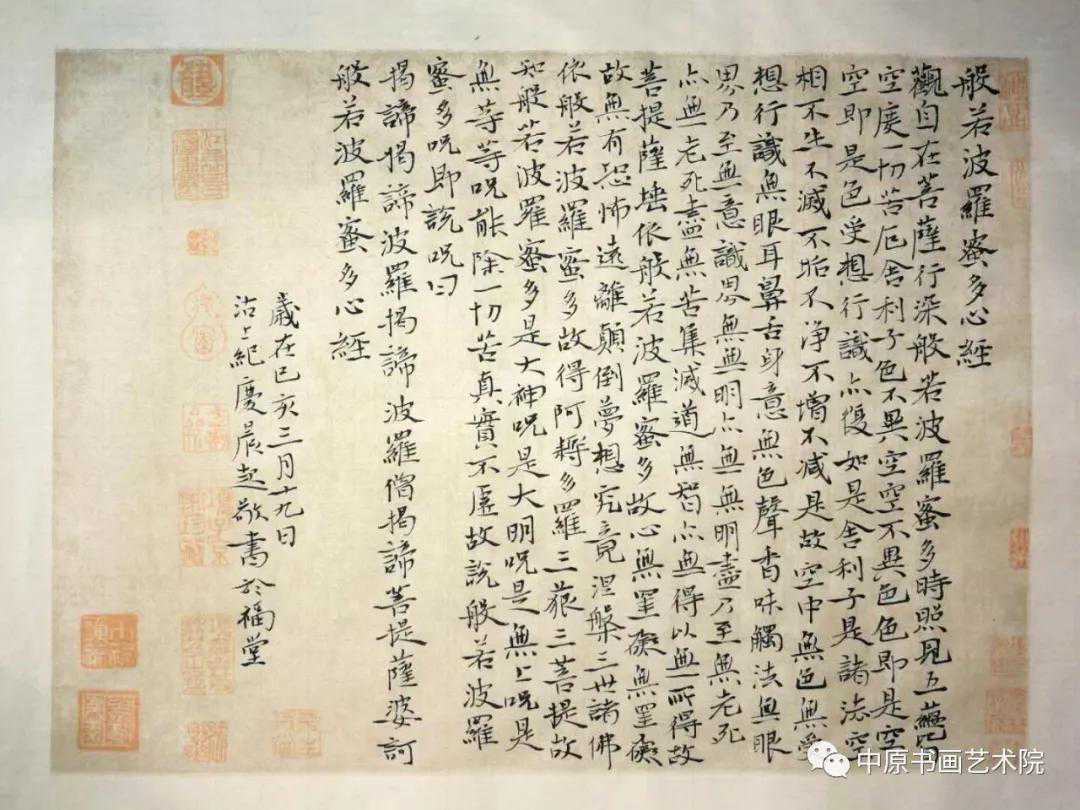 般若波羅蜜多心經
觀自在菩薩行深般若波羅蜜多時照見五蘊皆
空度一切苦厄舍利子色不異空空不異色色即是空
空即是色受想行識亦復如是舍利子是諸法空
相不生不滅不垢不淨不增不減是故空中無色無受
想行識無眼耳鼻舌身意無色聲香味觸法無眼
界乃至無意識界無無明亦無無明盡乃至無老死
亦無老死盡無苦集滅道無智亦無得以無所得故
菩提薩埵依般若波羅蜜多故心無罣礙無罣礙
故無有恐怖遠離顛倒夢想究竟涅槃三世諸佛
依般若波羅蜜多故得阿耨多羅三藐三菩提故
知般若波羅蜜多是大神呪是大明呪是無上呪是
無等等呪能除一切苦真實不虛故說般若波羅
蜜多呪即說呪曰
揭諦揭諦波羅揭諦波羅僧揭諦菩提薩婆訶
般若波羅蜜多心經
歲在己亥三月十九日
沽上紀慶晨起敬書於福堂
中原书画艺术院